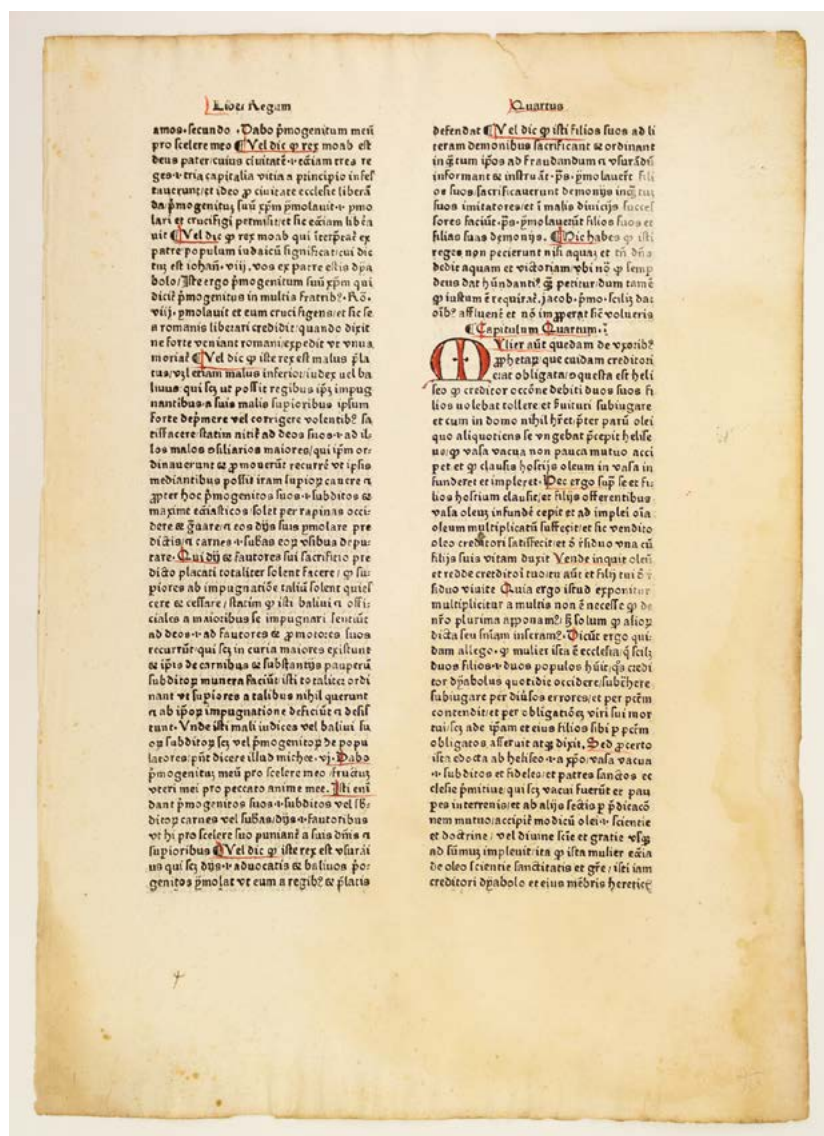 Liber Regum
amos. secundo . Dabo p̄mogenitum meū
pro scelere meo ¶ Vel dic ꝙ rex moab est
deus pater/cuius ciuitatē ⁊ eciam tres re
ges ⁊ tria capitalia vitia a principio infes
tauerunt/et ideo ꝓ ciuitate ecclesie liberā
da p̄mogenitū suū xp̄m p̄molauit ⁊ ymo
lari et crucifigi permisit/et sic eciam liberā
uit ¶ Vel dic ꝙ rex moab qui īterp̄tat̄ ex
patre populum iudaicū significat/cui dic
tuꝫ est iohan̄. viij. vos ex patre estis dya
bolo/Iste ergo p̄mogenitum suū xp̄m qui
dicit̄ p̄mogenitus in multis fratribꝫ. Ro.
viij. ymolauit et eum crucifigens/et sic se
a romanis liberari credidit/quando dixit
ne forte veniant romani/expedit vt vnus
moriat̄ ¶ Vel dic ꝙ iste rex est malus p̄la
tus/vel etiam malus inferior/iudex uel ba
liuus qui scꝫ ut possit regibus ip̄ꝫ impug
nantibus a suis malis sup̄ioribus ipsum
forte dep̄mere vel corrigere volentibꝫ sa
tisfacere/statim nitit̄ ad deos suos ⁊ ad il-
los malos osiliarios maiores/qui ipm or-
dinauerunt & ꝓmouerūt recurrē vt ipsis
mediantibus possit iram supioꝝ cauere &
ꝓpter hoc p̄mogenitos suos ⁊ subditos &
maxime ecciasticos solet per rapinas occi-
dere & grauare/⁊ eos dijs suis ymolare pre
dictis/⁊ carnes ⁊ subas eoꝝ vsibus depu-
tare. Qui dij & fautores sui sacrificio pre
dicto placati totaliter solent facere / ꝙ su-
piores ab impugnatiōe taliū solent quies
cere & cessare / statim ꝙ isti baliui ⁊ offi-
ciales a maioribus se impugnari sentiūt
ad deos ⁊ ad fautores & ꝓmotores suos
recurrūt/qui scꝫ in curia maiores existunt
& ip̄is de carnibus & substantijs pauperū
subditoꝝ munera faciūt/isti totaliter ordi
nant vt supiores a talibus nihil querunt
⁊ ab ip̄oꝝ impugnatione deficiūt ⁊ desis
tunt. Vnde isti mali iudices vel baliui su
oꝝ subditoꝝ scꝫ vel p̄mogenitoꝝ depopu
latores/pn̄t dicere illud michee. vj. Dabo
p̄mogenitū meū pro scelere meo fructuꝫ
vteri mei pro peccato anime mee. Isti enī
dant p̄mogenitos suos ⁊ subditos vel sb-
ditoꝝ carnes vel subas/dijs ⁊ fautoribus
vt hi pro scelere suo puniant̄ a suis dn̄is ⁊
supioribus ¶ Vel dic ꝙ iste rex est vsurāi
us qui scꝫ dijs ⁊ aduocatis & baliuos p̄o-
genitos ymolat vt eum a regibꝫ & p̄latis
Quartus
defendat ¶ Vel dic ꝙ isti filios suos ad li
teram demonibus sacrificant & ordinant
inq̄tum ip̄os ad fraudandum ⁊ vsurādū
informant & instruāt. ps. ymolauer̄t fili
os suos sacrificauerunt demonijs inq̄tuꝫ
suos imitatores/et ī malis diuicijs succes
sores faciūt. ps. ymolauerūt filios suos et
filias suas demonijs. ¶ Hic habes ꝙ isti
reges non pecierunt nisi aquaꝫ et tn̄ dn̄s
dedit aquam et victoriam/vbi nō ꝙ semp
deus dat hūndanti? q̄ petitur/dum tamē
ꝙ iustum ē requirat̄. jacob. p̄mo. scilꝫ dat
oībꝫ affluent̄ et nō improperat sic volueris
¶ Capitulum Quartum.
MVlier aūt quedam de vxoribꝫ
ꝓphetaꝝ que cuidam creditori
erat obligata/oquesta est heli
seo ꝙ creditor occōne debiti duos suos fi
lios uolebat tollere et ẜuituti subiugare
et cum in domo nihil hr̄et/p̄ter parū olei
quo aliquotiens se vngebat p̄cepit helise
us/ꝙ vasa vacua non pauca mutuo acci
pet et ꝙ clausis hostijs oleum in vasa in
funderet et impleret. Hec ergo sup se et fi-
lios hostium clausit/et filijs offerentibus
vasa oleuꝫ infunde cepit et ad implei oīa
oleum multiplicatū suffecit/et sic vendito
oleo creditori satisfecit/et d̄ r̄siduo vna cū
filijs suis vitam duxit Vende inquit oleū
et redde creditoī tuo/tu aūt et filij tui d̄ r̄
siduo viuite Quia ergo istud exponitur
multiplicitur a multis non ē necesse ꝙ de
nr̄o plurima apponam? sꝫ solum ꝙ alioꝝ
dicta seu sn̄iam inseram? Dicūt ergo qui-
dam allego. ꝙ mulier ista ē ecclesia/q̄ scilꝫ
duos filios ⁊ duos populos hūit/q̄s credi
tor dyabolus quotidie occidere/subēhere
subiugare per diuſos errores/et per pctm̄
contendit/et per obligatiōeꝫ viri sui mor
tui/scꝫ ade ip̄am et eius filios sibi p pctm̄
obligatos asseruit atqꝫ dixit. Sed ꝓcerto
ista edocta ab heliseo ⁊ a xp̄o/vasa vacua
⁊ subditos et fideles/et patres sanctos ec
clesie p̄mitiue qui scꝫ vacui fuerūt et pau
pes interrenis/et ab alijs sectis p p̄dicacō
nem mutuo/accipit̄ modicū olei ⁊ scientie
et doctrine / vel diuine scīe et gratie vsqꝫ
ad sūmuꝫ impleuit/ita ꝙ ista mulier ecia
de oleo scientie sanctitatis et gr̄e / isti iam
creditori dyabolo et eius mēbris hereticꝫ